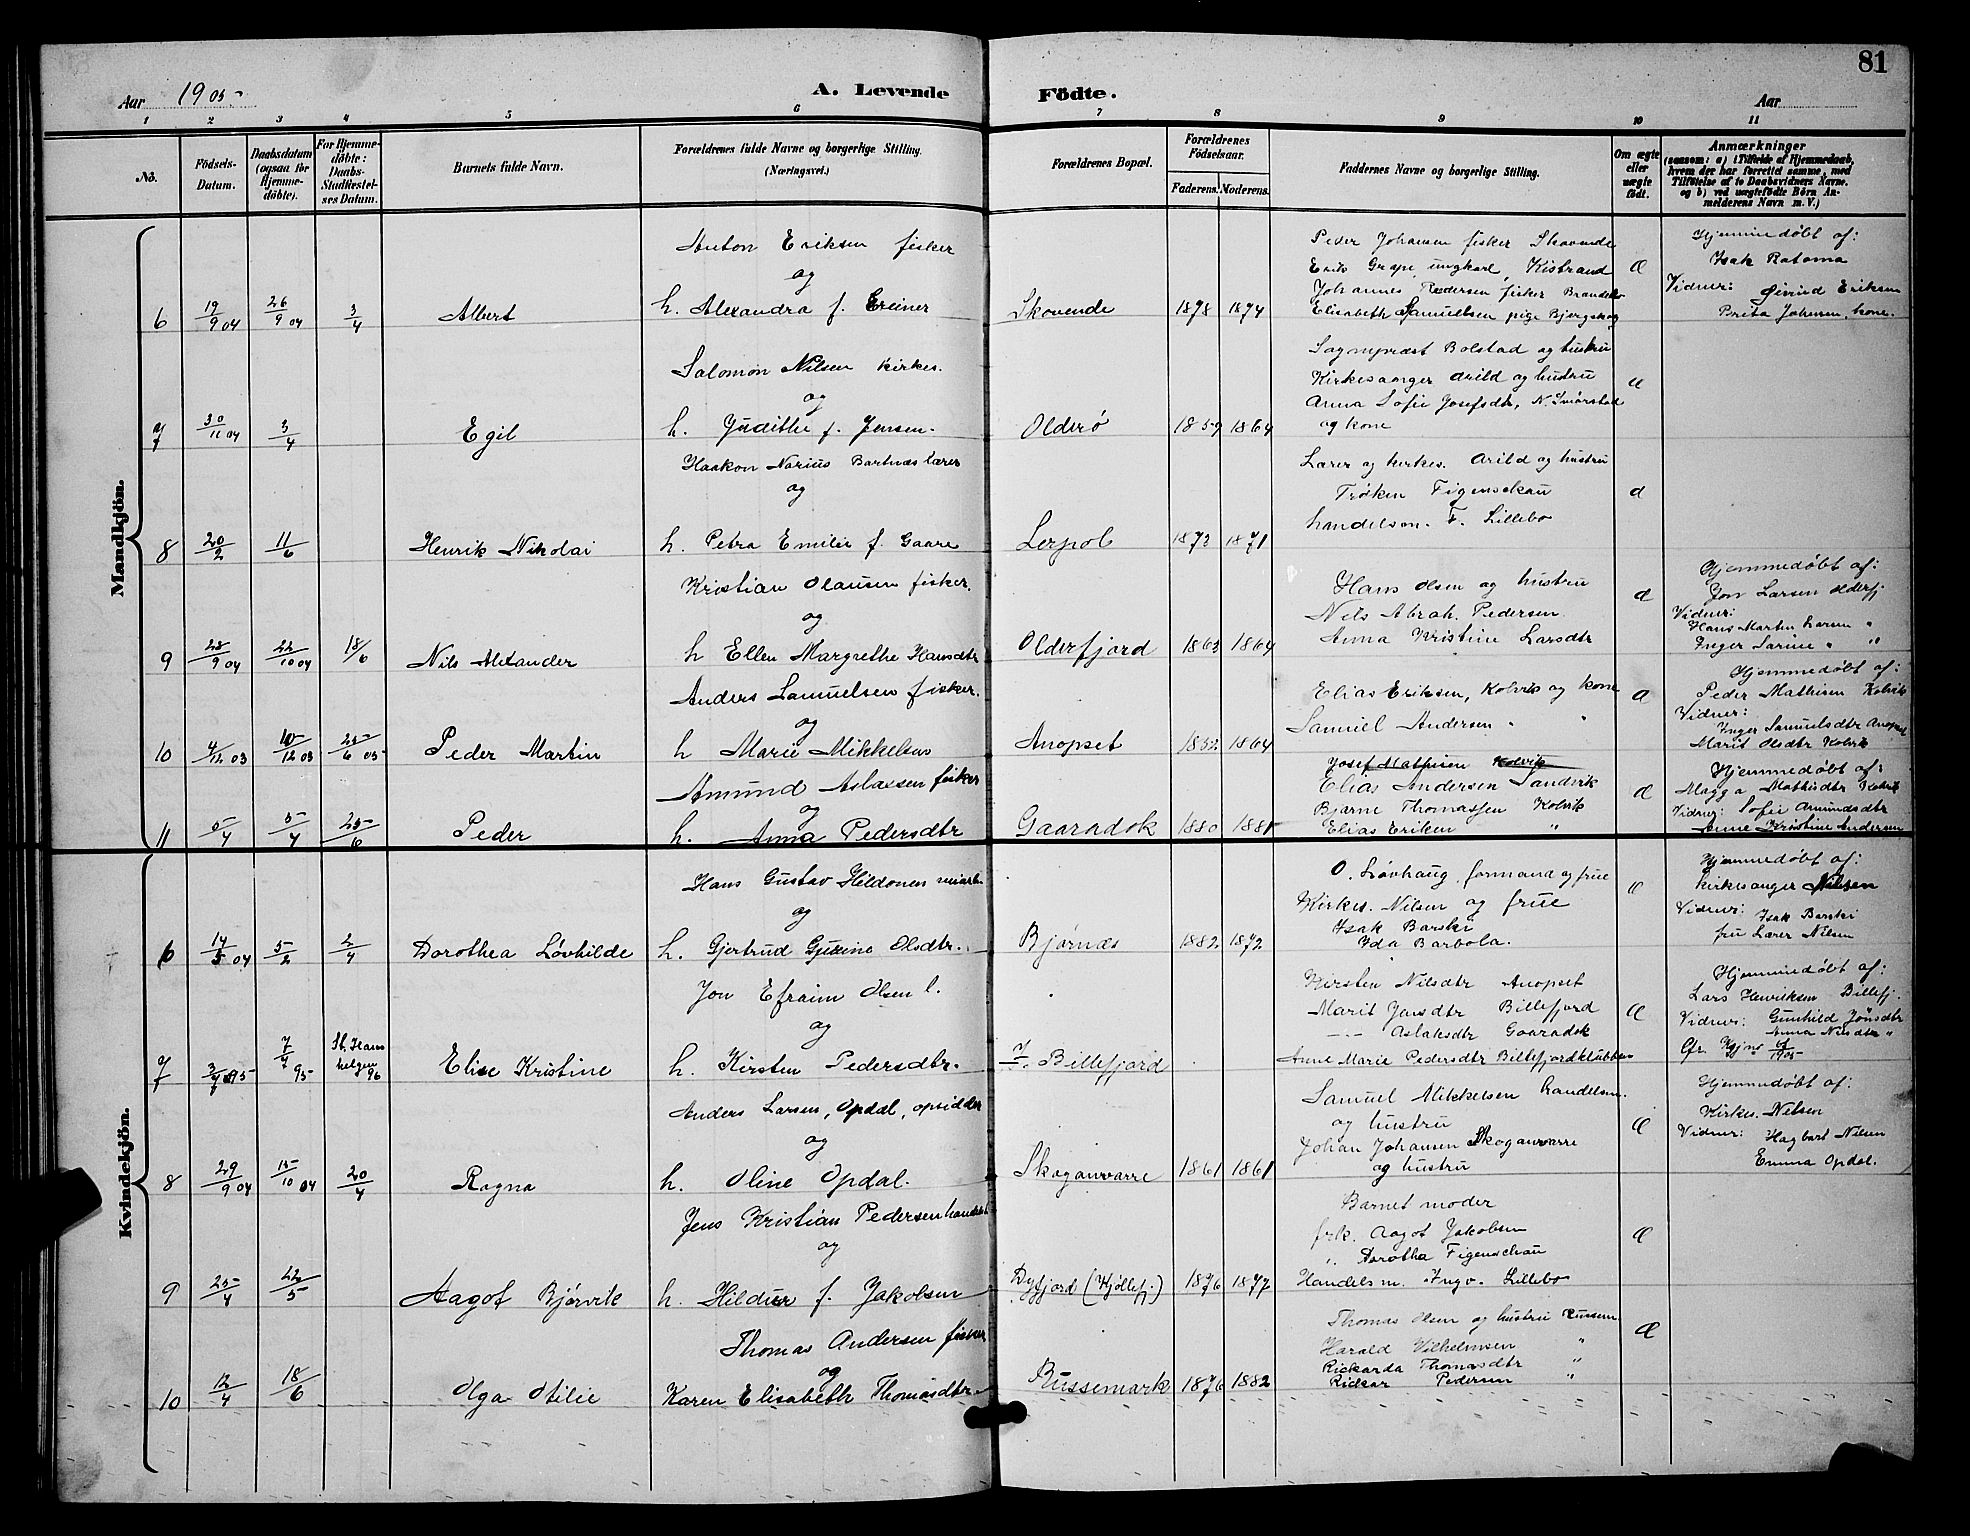 81
Aar 1905 A. Levende Födte. Aar
1 2 3 4 5 6 7 8 9 10 11
No. Födsels-Datum. Daabsdatum (ogsaa for Hjemmedöbte). For Hjemmedöbte: Daabs-Stadfæstelses Datum. Barnets fulde Navn. Forældrenes fulde Navne og borgerlige Stilling. (Næringsvei.) Forældrenes Bopæl. Forældrenes Födselsaar. Faderens. Moderens. Faddernes Navne og borgerlige Stilling. Om ægte eller uægte födt. Anmærkninger (saasom: a) i Tilfælde af Hjemmedaab, hvem der har forrettet samme, med Tilföielse af to Daabsvidners Navne. og b) ved uægtefödte Börn Anmelderens Navn m. V.)
Mandkjön.
Anton Eriksen fisker
og
6 19/9 04 26/9 04 3/4 Albert h. Alexandra f. Greiner Skovende 1878 1874
Peder Johansen fisker Skovende
Erik Grape, ungkarl, Kistrand
Johannes Pedersen fisker
Elisabeth Samuelsen pige
Hjemmedøbt af:
Isak Ratama
Vidner: Øivind Eriksen
Brita Johnsen, kone.
Salomon Nilsen kirkes.
og
7 30/11 04 3/4 Egil h. Judithe f. Jensen. Olderø 1859 1864
Sognepræst Bolstad og hustru
Kirkesanger Arild og hustru
Anna Sofie Josefsdtr, N. Smørstad
og kone
Haakon Narius Bartnæs lærer
og
8 20/2 11/6 Henrik Nikolai h. Petra Emilie f. Gaare Lerpol 1873 1871
Lærer og kirkes. Arild og hustru
Frøken Figenschau
handelsm. F. Lillebo
Kristian Olausen fisker.
og
9 28/9 04 22/10 04 18/6 Nils Alexander h Ellen Margrethe Hansdtr Olderfjord 1863 1864
Hans Olsen og hustru
Nils Abrah. Pedersen
Anna Kristine Larsdtr
Hjemmedøbt af:
Jon Larsen Olderfj.
Vidner:
Hans Martin Larsen "
Inger Sarine " "
Anders Samuelsen fisker.
og
10 4/12 03 10/12 03 25/6 05 Peder Martin h Marie Mikkelsen Anopset 1852 1864
Elias Eriksen, Kolvik og kone
Samuel Andersen " "
Hjemmedøbt af:
Peder Mathisen Kolvik
Vidner:
Inger Samuelsdtr Anopset
Marit Olsdtr Kolvik
Amund Aslaksen fisker
og
11 5/4 5/4 25/6 Peder h. Anna Pedersdtr Gaaradok 1880 1881
Josef Mathisen Kolvik
Elias Andersen Sandvik
Bjarne Thomassen Kolvik
Elias Eriksen "
Hjemmedøbt af:
Magga Mathisdtr Kolvik
Vidner: Sofie Amundsdtr
Anne Kristine Andersen
Kvindekjön.
Hans Gustav Hildonen
og
6 14/5 04 5/2 2/4 Dorothea Løvhilde h. Gjertrud Olsdtr. Bjørnæs 1882 1872
O. Løvhaug, formand og frue
Kirkes. Nilsen og frue
Isak Barski
Ida Barbola.
Hjemmedøbt af:
Kirkesanger Nilsen
Vidner: Isak Barski
fru Lærer Nilsen
Jon Efraim Olsen l.
og
7 3/7 95 7/7 95 St. Hans helgen 96 Elise Kristine h. Kirsten Pedersdtr. I. Billefjord
Kirsten Nilsdtr Anopset
Marit Jonsdtr Billefjord
Aslaksdtr Gaaradok
Anne Marie Pedersdtr Billefjordklubben
Hjemmedøbt af:
Lars Henriksen Billefj.
Vidner: Gunhild Jonsdtr
Anna Nilsdtr "
Anders Larsen, Opdal, opsidder
og
8 29/9 04 15/10 04 20/4 Ragna h. Oline Opdal. Skoganvarre 1861 1861
Samuel Mikkelsen handelsm.
og hustru
Johan Johansen Skoganvarre
og hustru
Hjemmedøbt af:
Kirkes. Nilsen
Vidner: Hagbart Nilsen
Emma Opdal.
Jens Kristian Pedersen
og
9 25/4 22/5 Aagot Bjørvik h. Hildur f. Jakobsen Dyfjord (Kjøllefj.) 1876 1877
Barnet moder
frk. Aagot Jakobsen
" Dorothea Figenschau
Handelsm. Ingv. Lillebo
Thomas Andersen fisker
og
10 12/4 18/6 Olga Otilie Karen Elisabeth Thomasdtr Russemark 1876 1882
Thomas Olsen og hustru Russem.
Harald Vilhelmsen "
Rickarda Thomasdtr "
Rickar Pedersen "